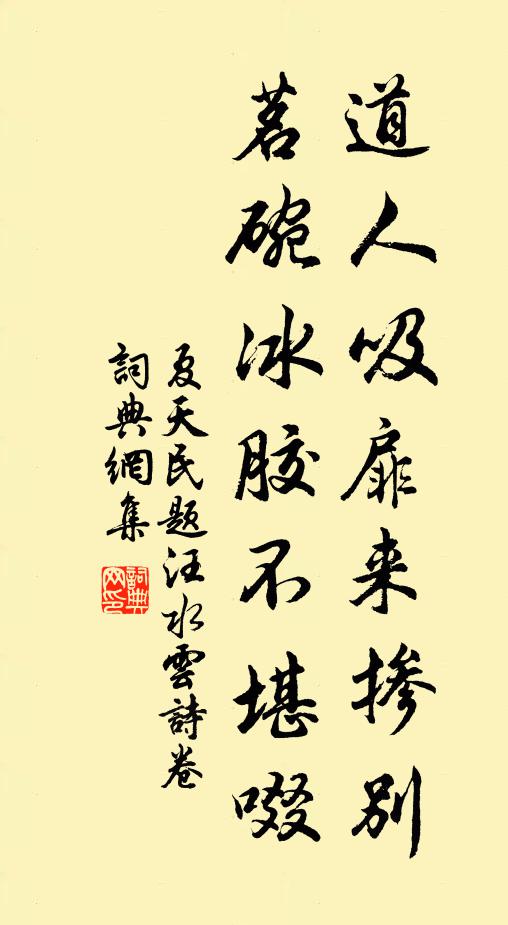 道人吸扉来掺别
茗碗冰胶不堪啜
夏天民题汪水雲詩卷
詞典網集
詞典網印